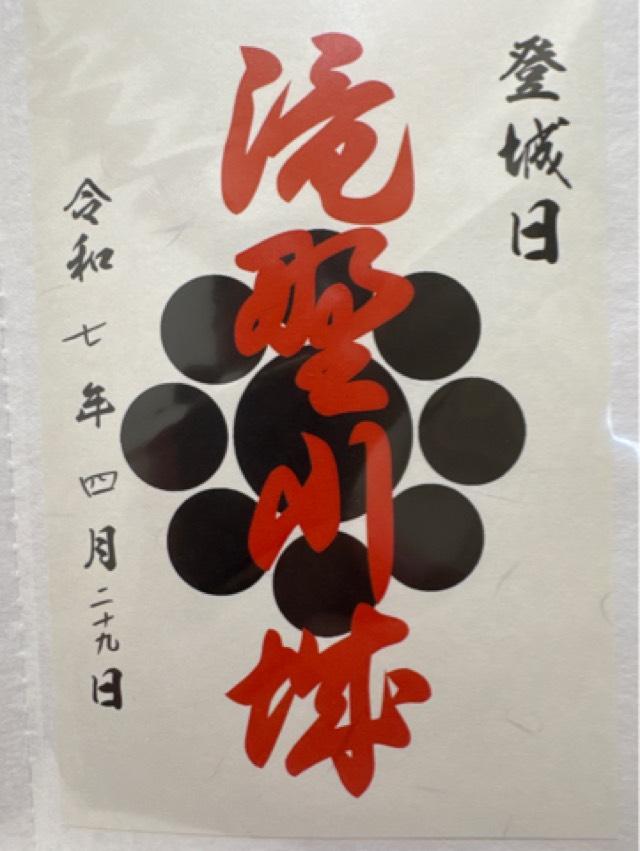 登城日
滝野川城
令和七年四月二十九日